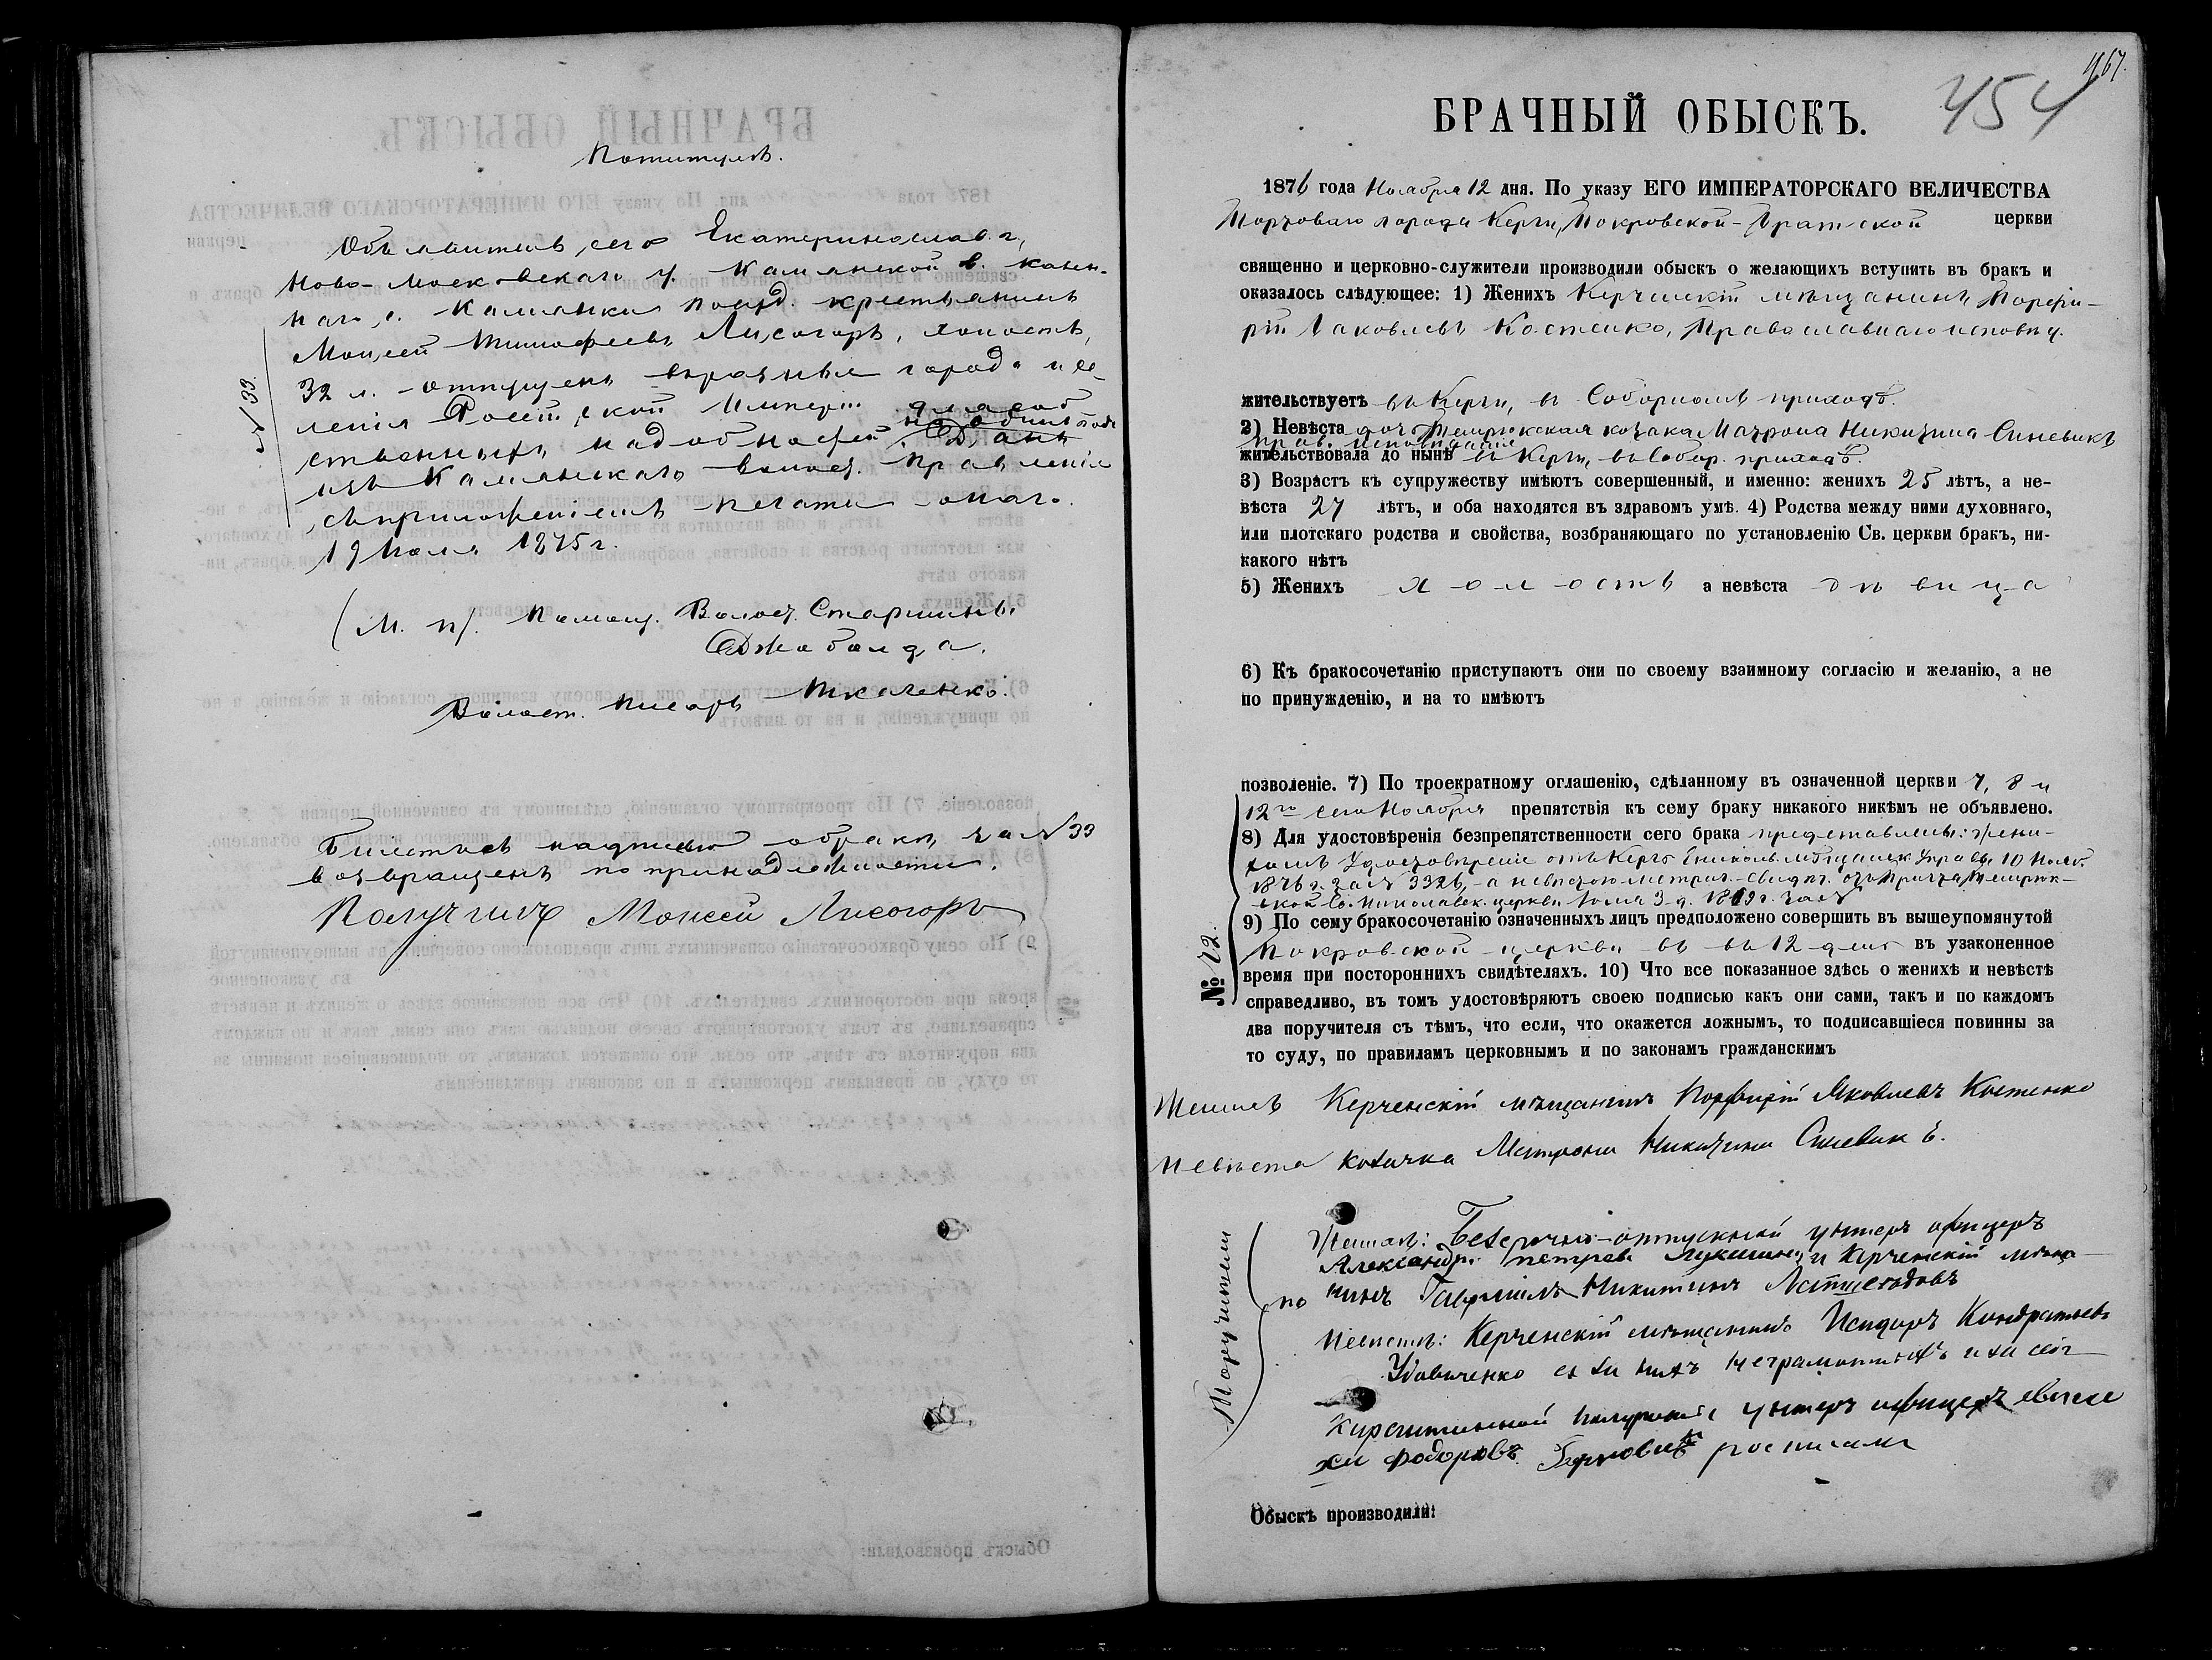 По титулѣ.
Объявитель сего Екатеринослав. г.,
Ново-Московскаго у. Камянской в. казен-
наго с. Камянки госуд. крестьянинъ
Моисей Тимофеевъ Лисогоръ, холостъ,
32 л. - отпущенъ въ разные города и се-
ленія Россійской Имперіи для соб
ственныхъ надобностей на одинъ годъ. Данъ
изъ Камянскаго волост. правленія
съ приложеніемъ печати онаго.
19 1875 г.
№ 33.
(М. п). Помощ. Волос. Старшины
Волост. Писарь Ткаченко.
Билетъ съ надписью о бракѣ за № 33
возвращенъ по принадлежности.
Получилъ Моисей Лисогоръ
467.
454
БРАЧНЫЙ ОБЫСКЪ.
1876 года Ноября 12 дня. По указу ЕГО ИМПЕРАТОРСКАГО ВЕЛИЧЕСТВА
Портоваго города Керчи, Покровской-Братской церкви
священно и церковно-служители производили обыскъ о желающихъ вступить въ бракъ и
оказалось слѣдующее: 1) Женихъ Керченскій мѣщанинъ Порфи-
рій Іаковлевъ Костенко, Православнаго исповѣд.
жительствуетъ въ Керчи, въ Соборномъ приходѣ.
2) Невѣста дочь Темрюкская козака Матрона Никитина Синевикъ
прав. исповѣданія
жительствовала до нынѣ въ Керчи, въ Собор. приходѣ.
3) Возрастъ къ супружеству имѣютъ совершенный, и именно: женихъ 25 лѣтъ, а не-
вѣста 27 лѣтъ, и оба находятся въ здравомъ умѣ. 4) Родства между ними духовнаго,
или плотскаго родства и свойства, возбраняющаго по установленію Св. церкви бракъ, ни-
какого нѣтъ
5) Женихъ холостъ а невѣста дѣвица
6) Къ бракосочетанію приступаютъ они по своему взаимному согласію и желанію, а не
по принужденію, и на то имѣютъ
позволеніе. 7) По троекратному оглашенію, сдѣланному въ означенной церкви 7, 8 и
12го сего Ноября препятствія къ сему браку никакого никѣмъ не объявлено.
8) Для удостовѣренія безпрепятственности сего брака представлены: жени-
хомъ Удостовѣреніе отъ Керчь Еникольск. мѣщанск. Управы 10 Нояб.
1876 г. за № 3326, а невѣстою метрич. свидѣт. отъ причта Темрюк-
ской Св. Николаевск. церкви 3 д. 1869 г. за №
9) По сему бракосочетанію означенныхъ лицъ предположено совершить въ вышеупомянутой
Покровской церкви въ 12 день въ узаконенное
время при постороннихъ свидѣтеляхъ. 10) Что все показанное здѣсь о женихѣ и невѣстѣ
справедливо, въ томъ удостовѣряютъ своею подписью какъ они сами, такъ и по каждомъ
два поручителя съ тѣмъ, что если, что окажется ложнымъ, то подписавшіеся повинны за
то суду, по правиламъ церковнымъ и по законамъ гражданскимъ
№ 72.
Женихъ Керченскій мѣщанинъ Порфирій Яковлевъ Костенко
Невѣста козачка Матрона Никитина Синевикъ.
Поручители
по
Женихѣ: Безсрочно-отпускной унтеръ офицеръ
Александръ Петровъ и Керченскій мѣща
нинъ Гавріилъ Никитинъ
Невѣстѣ: Керченскій мѣщанинъ Исидоръ Кондратьевъ
Удовиченко
унтеръ офицеръ
росписался
Обыскъ производили: